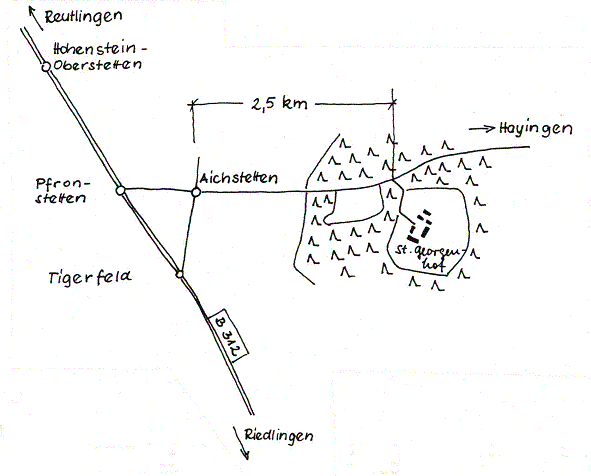 Reutlingen
Hohenstein-
Oberstetten
2,5 km
Hayingen
Pfron-
stetten
Aichstetten
St. Georgen-
hof
Tigerfeld
B 312
Riedlingen